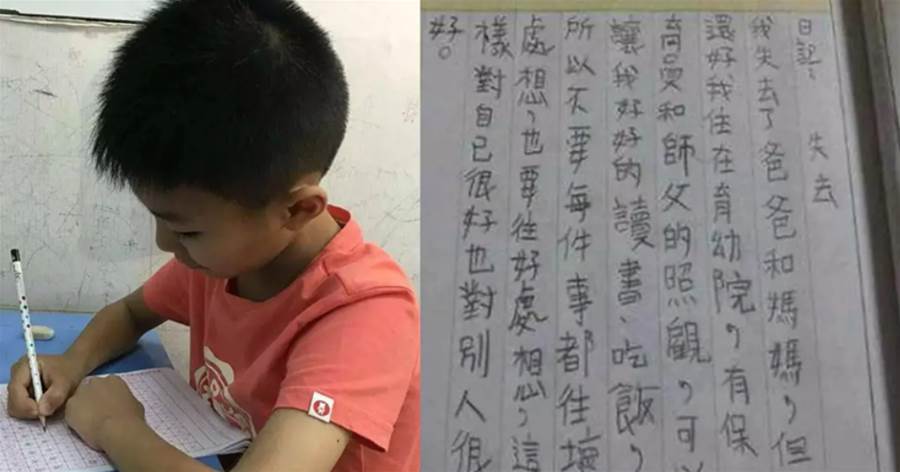 日記: 失去
我失去了爸爸和媽媽,但
還好我住在育幼院,有保
育員和師父的照顧,可以
讓我好好的讀書、吃飯,
所以不要每件事都往壞
處想,也要往好處想,這
樣對自己很好也對別人很
好。